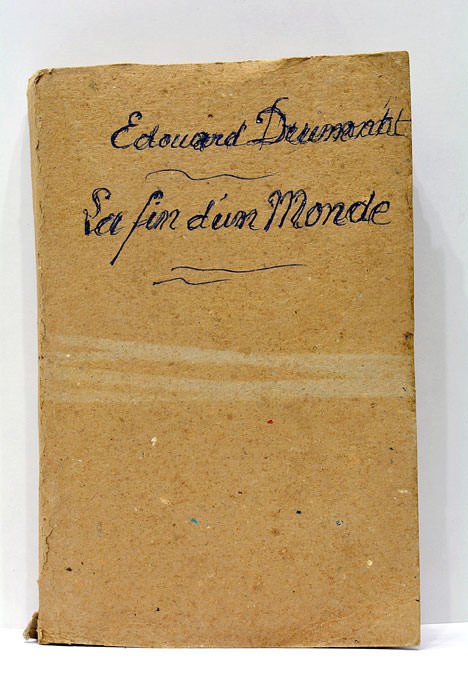 Edouard Drumont
La fin d'un Monde